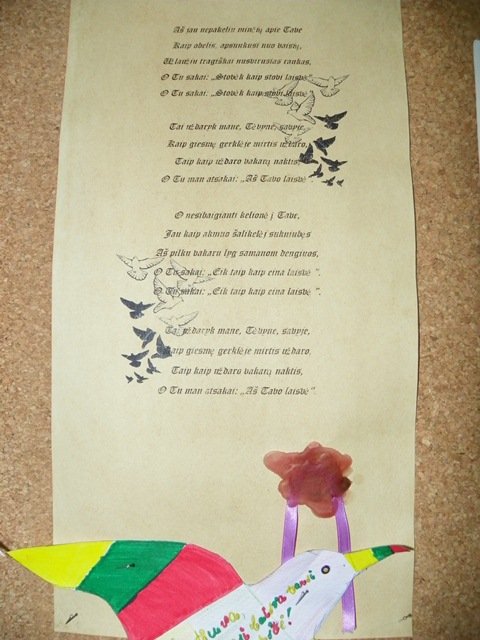 Aš jau nepakeliu minčių apie Tave
Kaip obelis, apsunkusi nuo vaisių,
Užlaužiu tragiškai nusvirusias rankas,
O Tu sakai: „Stovėk kaip stovi laisvė“.
O Tu sakai: „Stovėk kaip stovi laisvė“.
Tai uždaryk mane, Tėvyne, savyje,
Kaip giesmę gerklėje mirtis uždaro,
Taip kaip uždaro vakarą naktis,
O Tu man atsakai: „Aš Tavo laisvė“
O nesibaigianti kelionė į Tave,
Jau kaip akmuo šalikelėj sukniubęs
Aš pilku vakaru lyg samanom dengiuos,
O Tu sakai: „Eik taip kaip eina laisvė “.
O Tu sakai: „Eik taip kaip eina laisvė “.
Tai uždaryk mane, Tėvyne, savyje,
Kaip giesmę gerklėje mirtis uždaro,
Taip kaip uždaro vakarą naktis,
O Tu man atsakai: „Aš Tavo laisvė“.